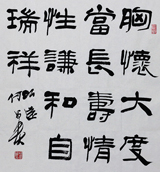 胸懷大度
當長壽情
性謙和自
瑞祥